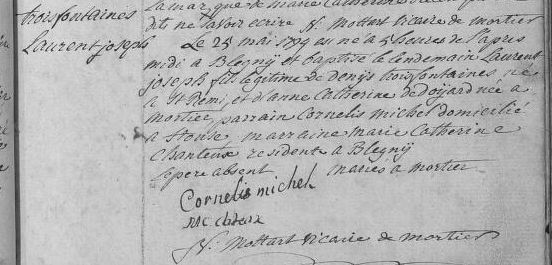 troisfontaines
Laurent joseph
dit ne savoir ecrire N. Mottart vicaire de mortier
Le 25 mai est ne a 5 heures de l'apres
midi a Blegnij et baptise le lendemain Laurent
joseph fil legitime de denijs troisfontaines ne
a St Remi, et d'anne Catherine dedoijard nee a
mortier, parrain Cornelis michel domicilié
a housse marraine marie Catherine
Chanteux residente a Blegnij
le pere absent mariés a mortier
Cornelis michel
N. Mottart vicaire de mortier